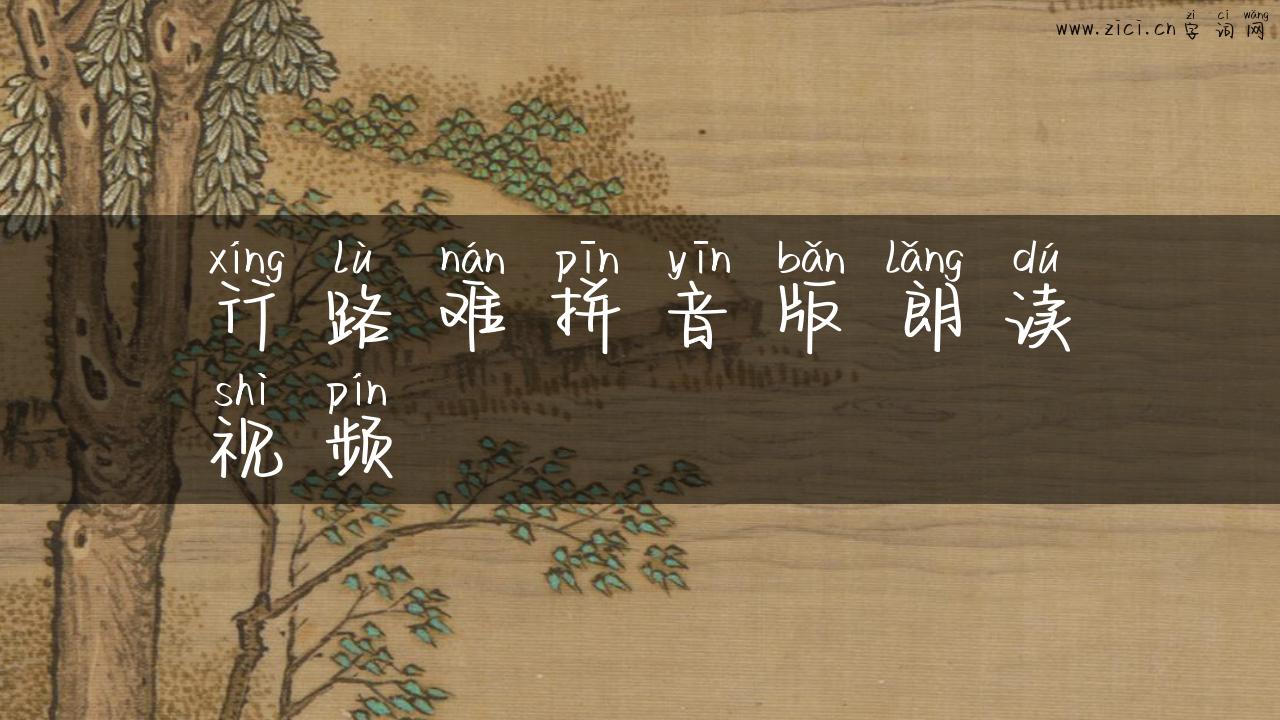 zì cí wǎng
www.zici.cn 字词网
xíng lù nán pīn yīn bǎn lǎng dú
行路难拼音版朗读
shì pín
视频